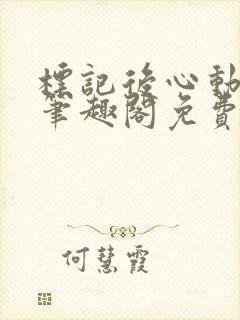 標記後心動
筆趣閣免費
何慧霞